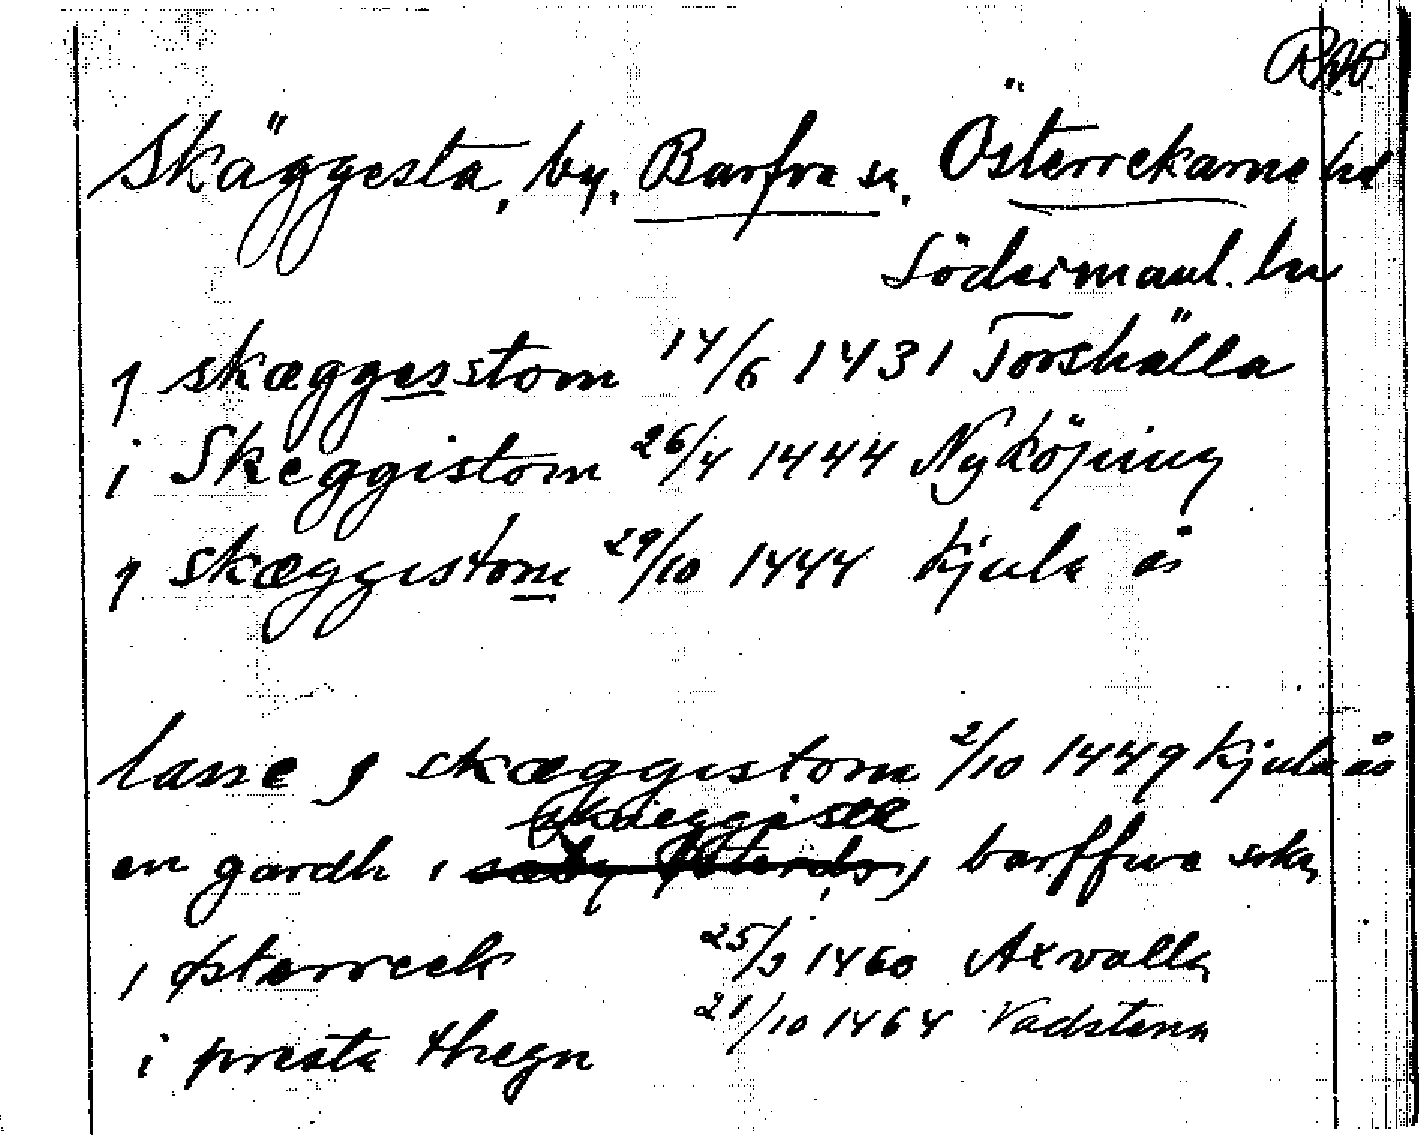 Skäggesta, by, Barfva sn, Österrekarne hd
Södermanl. ln
j skæggesstom 14/6 1431 Torshälla
i Skeggistom 26/4 1444 Nyköping
j skæggistom 29/10 1444 Kjula ås
lasse j skæggistom 2/10 1449 Kjula ås
skæggisæ
en gardh i sæby j barffwe sokn
i østarreck 25/3 1460 Axvalla
i presta thegn 21/10 1464 Vadstena